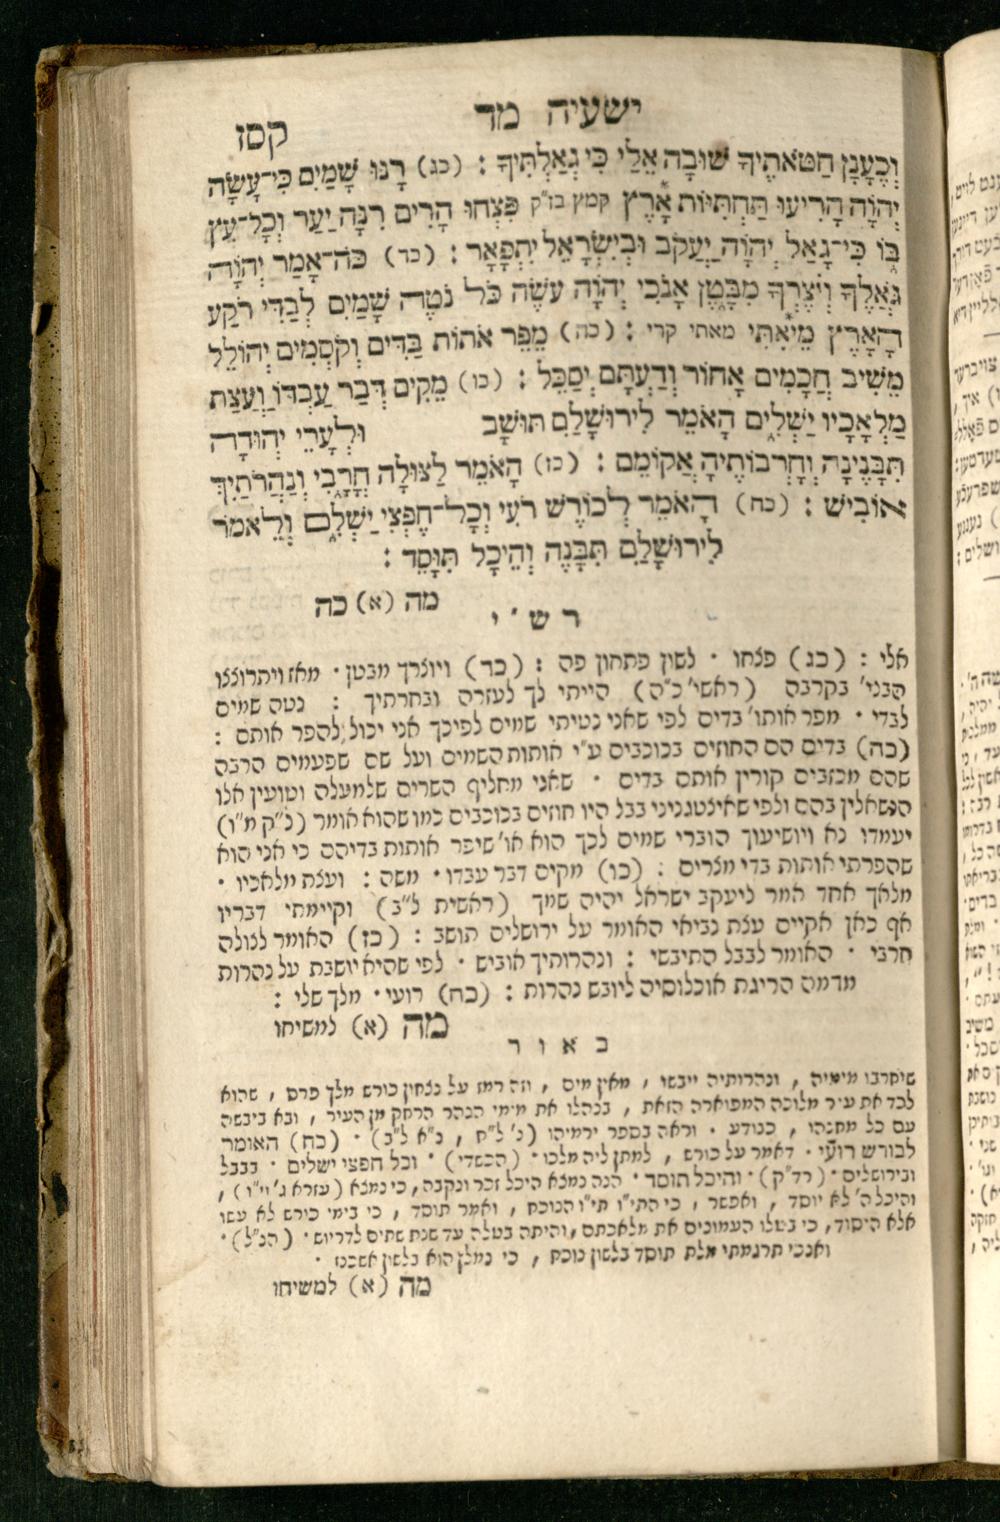 ישעיה מד
קסז
וְכֶעָנָן חַטֹּאתֶיךָ שׁוּבָה אֵלַי כִּי גְאַלְתִּיךָ : (כג) רָנּוּ שָׁמַיִם כִּי־עָשָׂה
יְהוָֹה הָרִיעוּ תַּחְתִּיּוֹת אָרֶץ קמץ בז"ק פִּצְחוּ הָרִים רִנָּה יַעַר וְכָל־עֵץ
בּוֹ כִּי־גָאַל יְהוָֹה יַעֲקֹב וּבְיִשְׂרָאֵל יִתְפָּאָר : (כד) כֹּה־אָמַר יְהוָֹה
גֹּאֲלֶךָ וְיֹצֶרְךָ מִבָּטֶן אָנֹכִי יְהוָֹה עֹשֶׂה כֹּל נֹטֶה שָׁמַיִם לְבַדִּי רֹקַע
הָאָרֶץ מֵיאִתִּי מאתי קרי : (כה) מֵפֵר אֹתוֹת בַּדִּים וְקֹסְמִים יְהוֹלֵל
מֵשִׁיב חֲכָמִים אָחוֹר וְדַעְתָּם יְסַכֵּל : (כו) מֵקִים דְּבַר עַבְדּוֹ וַעֲצַת
מַלְאָכָיו יַשְׁלִים הָאֹמֵר לִירוּשָׁלִַם תּוּשָׁב וּלְעָרֵי יְהוּדָה
תִּבָּנֶינָה וְחָרְבוֹתֶיהָ אֲקוֹמֵם : (כז) הָאֹמֵר לַצּוּלָה חֳרָבִי וְנַהֲרֹתַיִךְ
אוֹבִישׁ : (כח) הָאֹמֵר לְכוֹרֶשׁ רֹעִי וְכָל־חֶפְצִי יַשְׁלִם וְלֵאמֹר
לִירוּשָׁלִַם תִּבָּנֶה וְהֵיכָל תִּוָּסֵד :
מה (א) כה
רש"י
אלי : (כג) פצחו · לשון פתחון פה : (כד) ויוצרך מבטן · מאז ויתרוצצו
הבני' בקרבה (ראשי' כ"ה) הייתי לך לעזרה ובחרתיך : נטה שמים
לבדי · מפר אותו' בדים לפי שאני נטיתי שמים לפיכך אני יכול להפר אותם :
(כה) בדים הם החוזים בכוכבים ע"י אותות השמים ועל שם שפעמים הרבה
שהם מכזבים קורין אותם בדים · שאני מחליף השרים שלמעלה וטועין אלו
הנשאלין בהם ולפי שאיצטגניני בבל היו חוזים בכוכבים כמו שהוא אומר (נ"ק מ"ו)
יעמדו נא ויושיעוך הוברי שמים לכך הוא או' שיפר אותות בדיהם כי אני הוא
שהפרתי אותות בדי מצרים : (כו) מקים דבר עבדו · משה : ועצת מלאכיו ·
מלאך אחד אמר ליעקב ישראל יהיה שמך (ראשית ל"ב) וקיימתי דבריו
אף כאן אקיים עצת נביאי האומר על ירושלים תושב : (כז) האומר לצולה
חרבי · האומר לבבל התיבשי : ונהרותיך אוביש · לפי שהיא יושבת על נהרות
מדמה הריגת אוכלוסיה ליובש נהרות : (כח) רועי · מלך שלי :
מה (א) למשיחו
באור
שיחרבו מימיה , ונהרותיה ייבשו , מאין מים , וזה רמז על נצחון כורש מלך פרס , שהוא
לכד את עיר מלוכה המפוארה הזאת , בנהלו את מימי הנהר הרחק מן העיר , ובא ביבשה
עם כל מחנהו , כנודע . וראה בספר ירמיהו (נ' ל"ח , נ"א ל"ב) · (כח) האומר
לכורש רועי · דאמר על כורש , למתן ליה מלכו · (הכשדי) · וכל חפצי ישלים · בבבל
ובירושלים · (רד"ק) · והיכל תוסד · הנה נמצא היכל זכר ונקבה, כי נמצא (עזרא ג' וי"ו) ,
והיכל ה' לא יוסד , ואפשר , כי התי"ו תי"ו הנוכח , ואמר תוסד , כי בימי כורש לא עשו
אלא היסוד, כי בטלו העמונים את מלאכתם, והיתה בטלה עד שנת שתים לדריוש · (הנ"ל) ·
ואנכי תרגמתי מלת תוסד בלשון נוכח , כי נמלץ הוא בלשון אשכנז ·
מה (א) למשיחו